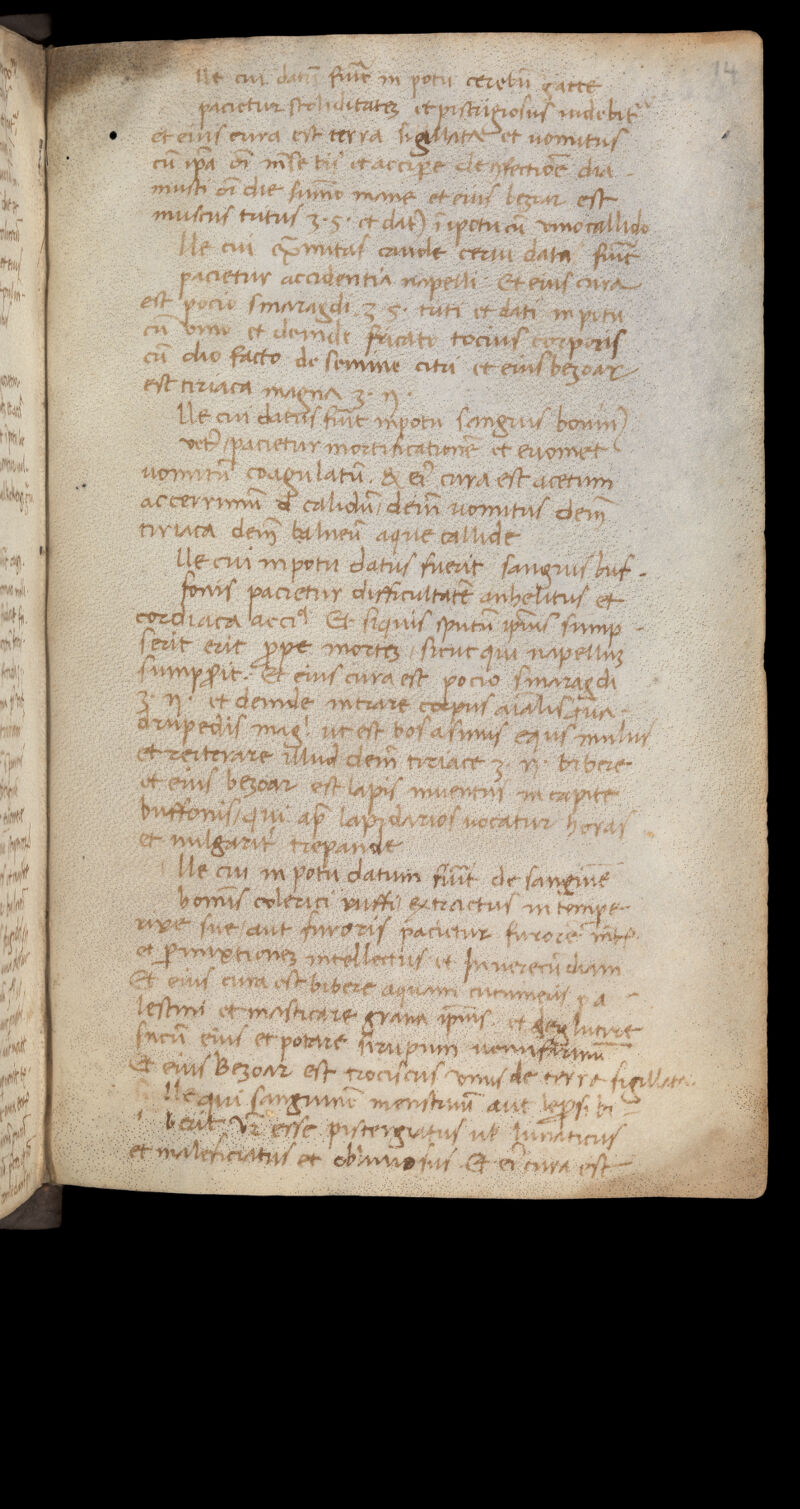 14
Ille cui datũ fuit̃ in potu cerebrũ gatte
pacietur stoliditatẽ et pistrigiosus uidebit̃
et eius cura est terra sigillata et uomitus
cũ ip̃a om̃i mẽse bis et accipe de cõfectiõe dia
musti om̃i die sum̃o mane et eius bezoar est
muscus tritus ʒ·5· et dat᷑ ĩ potu cũ uino callido
Ille cui ex̃mitas caude cerui data fuit̃
pacietur accidentia napelli Et eius cura
est pocio smaragdi ʒ 5· triti et dati in potu
cũ uino et deinde fricato tocius corporis
cũ olio facto de semine citri et eius bezoar
est tiriaca magna ʒ· ij·
Ille cui datus fuit̃ in potu sanguis bouinꝰ
pacietur mortificationẽ et euomet
uomitũ coagulatũ. & eiꝰ cura est acetum
accerrimũ & calidũ / dein̄ uomitus dein̄
tiriaca dein̄ balneũ aque callide
Ille cui in potu datus fuerit sanguis buf-
fonis pacietur difficultatẽ anhelitus et
cordiaca Et siquis sputũ ip̃ius sump-
serit erit prope mortẽ / sicut qui napellũ
sumpserit. Et eius cura est pocio smaragdi
ʒ· ij· et deinde intrare corpus aĩalis qua-
drupedis mag̃ ut est bos asinus equs mulus
et reiterare illud dein̄ tiriace ʒ· ij· bibere
et eius bezoar est lapis inuentus in capite
buffonis / qui ap̃ lapidarios uocatur horas
et uulgarit̃ trepande
Ille cui in potu datum fuit̃ de sanguine
hominis colerici ruffi extractus in tempe
rixe sue / aut furoris pacietur furorẽ
et permixtionẽ intellectus et Inuerecũdiam
Et eius cura est bibere aquam cucumeris pa-
lestini et masticare grana ip̃ius et deglutire
sucũ eius et potare sirupum
Et eius Bezoar est trociscus unus de terra sigillata.
Ille qui sanguinẽ menstruũ aut leprosi bi-
berit Vr̃ esse pistergiatus ut lunaticus
et maleficiatus et obliuiosus Et eiꝰ cura est